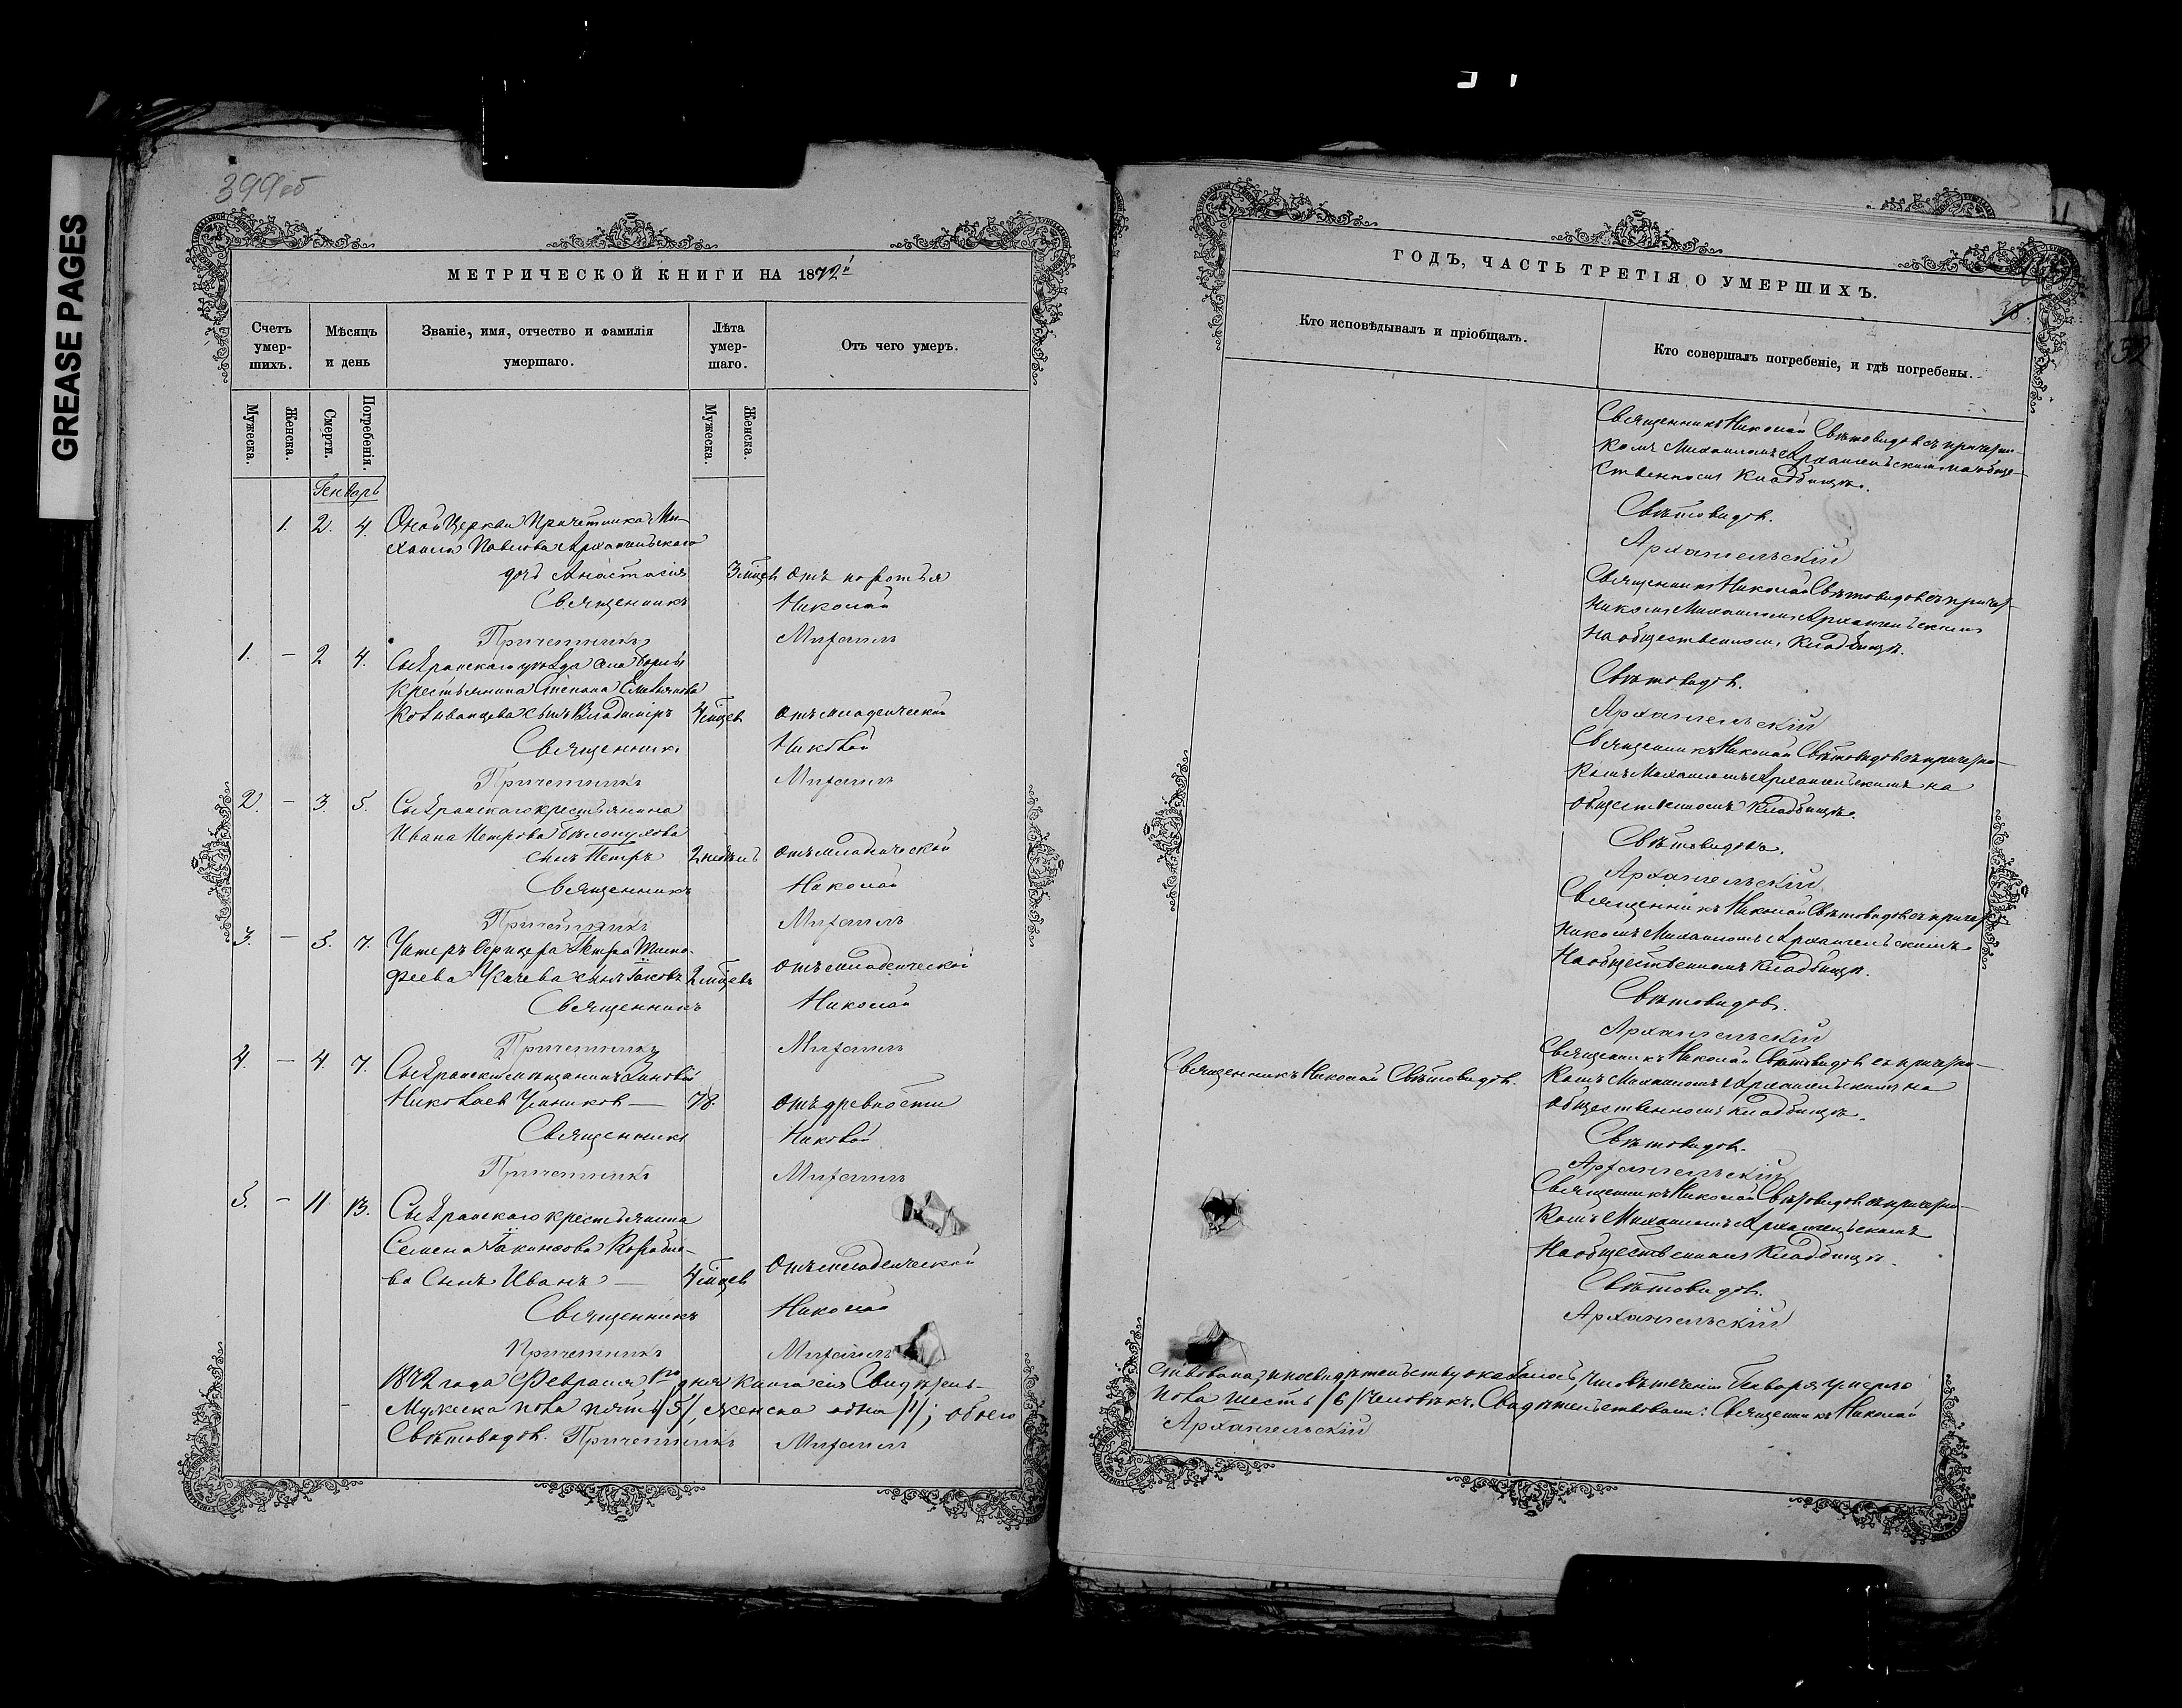 GREASE PAGES
399об
МЕТРИЧЕСКОЙ КНИГИ НА 1872й
Счетъ умер-шихъ.
Мѣсяцъ и день
Званіе, имя, отчество и фамилія умершаго.
Лѣта умер-шаго.
Отъ чего умеръ.
Мужеска.
Женска.
Смерти.
Погребенія.
Мужеска.
Женска.
Генварь
1. 2. 4. Оной Церкви Причетника Ми-
хаила Павлова Архангельскаго
дочь Анастасія 3 мѣсяц.
Священникъ Николай
Причетникъ Михаилъ
1. — 2 4. Сызранскаго уѣзда села
крестьянина Степана Емельянова
сынъ Владиміръ 4 мѣсяц. отъ младенческой
Священникъ Николай
Причетникъ Михаилъ
2. — 3. 5. Сызранскаго крестьянина
Ивана Петрова Бѣлопухова
сынъ Петръ 2 недѣль отъ младенческой
Священникъ Николай
Причетникъ Михаилъ
3. — 5. 7. Унтеръ Офицера Петра Тимо-
феева сынъ Іаковъ 2 мѣсяцевъ отъ младенческой
Священникъ Николай
Причетникъ Михаилъ
4. — 4. 7. Сызранскій мѣщанинъ Зиновій
Николаев — 78. отъ древности
Священникъ Николай
Причетникъ Михаилъ
5. — 11 13. Сызранскаго крестьянина
Семена
ва Сынъ Иванъ — 4 мѣсяцев отъ младенческой
Священникъ Николай
Причетникъ Михаилъ
1872 года Февраля 1го дня книга сія Свидѣтель-
Мужеска пола пять /5/, женска одна /1/; обоего
Свѣтовидов. Причетникъ Михаилъ
ГОДЪ, ЧАСТЬ ТРЕТІЯ О УМЕРШИХЪ.
38
Кто исповѣдывалъ и пріобщалъ.
Кто совершалъ погребеніе, и гдѣ погребены.
Священникъ Николай Свѣтовидов съ причетни-
комъ Михаиломъ Архангельскимъ на обще-
ственномъ кладбищѣ.
Свѣтовидов.
Архангельскій
Священникъ Николай Свѣтовидов съ причет-
никомъ Михаиломъ Архангельскимъ
на общественном кладбищѣ.
Свѣтовидов.
Архангельскій
Священникъ Николай Свѣтовидов съ причетни-
комъ Михаиломъ Архангельскимъ на
общественномъ кладбищѣ.
Свѣтовидовъ.
Архангельскій
Священникъ Николай Свѣтовидов съ причет-
никомъ Михаиломъ Архангельскимъ
на общественномъ кладбищѣ.
Свѣтовидов.
Архангельскій
Священникъ Николай Свѣтовидов. Священникъ Николай Свѣтовидов съ причетни-
комъ Михаиломъ Архангельскимъ на
общественномъ кладбищѣ.
Свѣтовидов.
Архангельскій
Священникъ Николай Свѣтовидов съ причетни-
комъ Михаиломъ Архангельскимъ
на общественномъ кладбищѣ.
Свѣтовидов.
Архангельскій
ствована, и по свидѣтельству оказалось, что въ теченіи Генваря умерло
пола шесть /6/ человѣкъ. Свидѣтельствовали: Священникъ Николай
Архангельскій